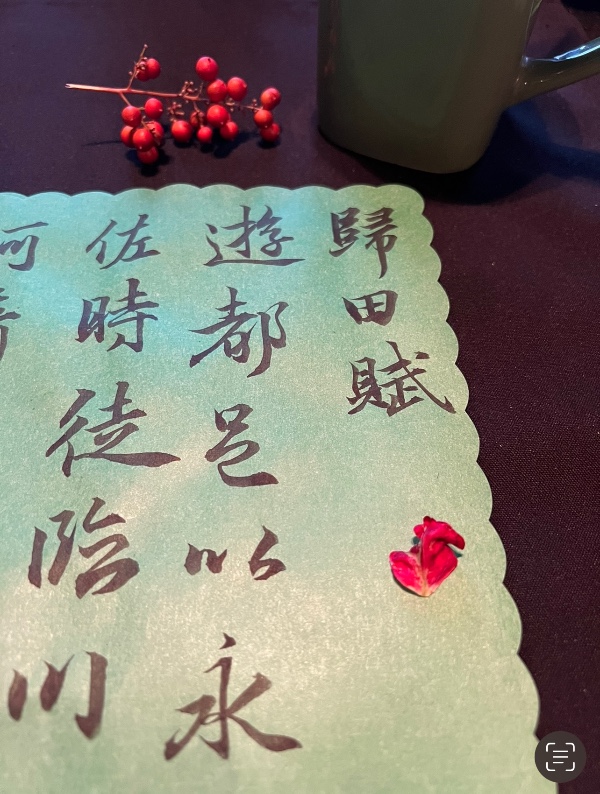 歸田賦
遊都邑以永
佐時徒臨川
河